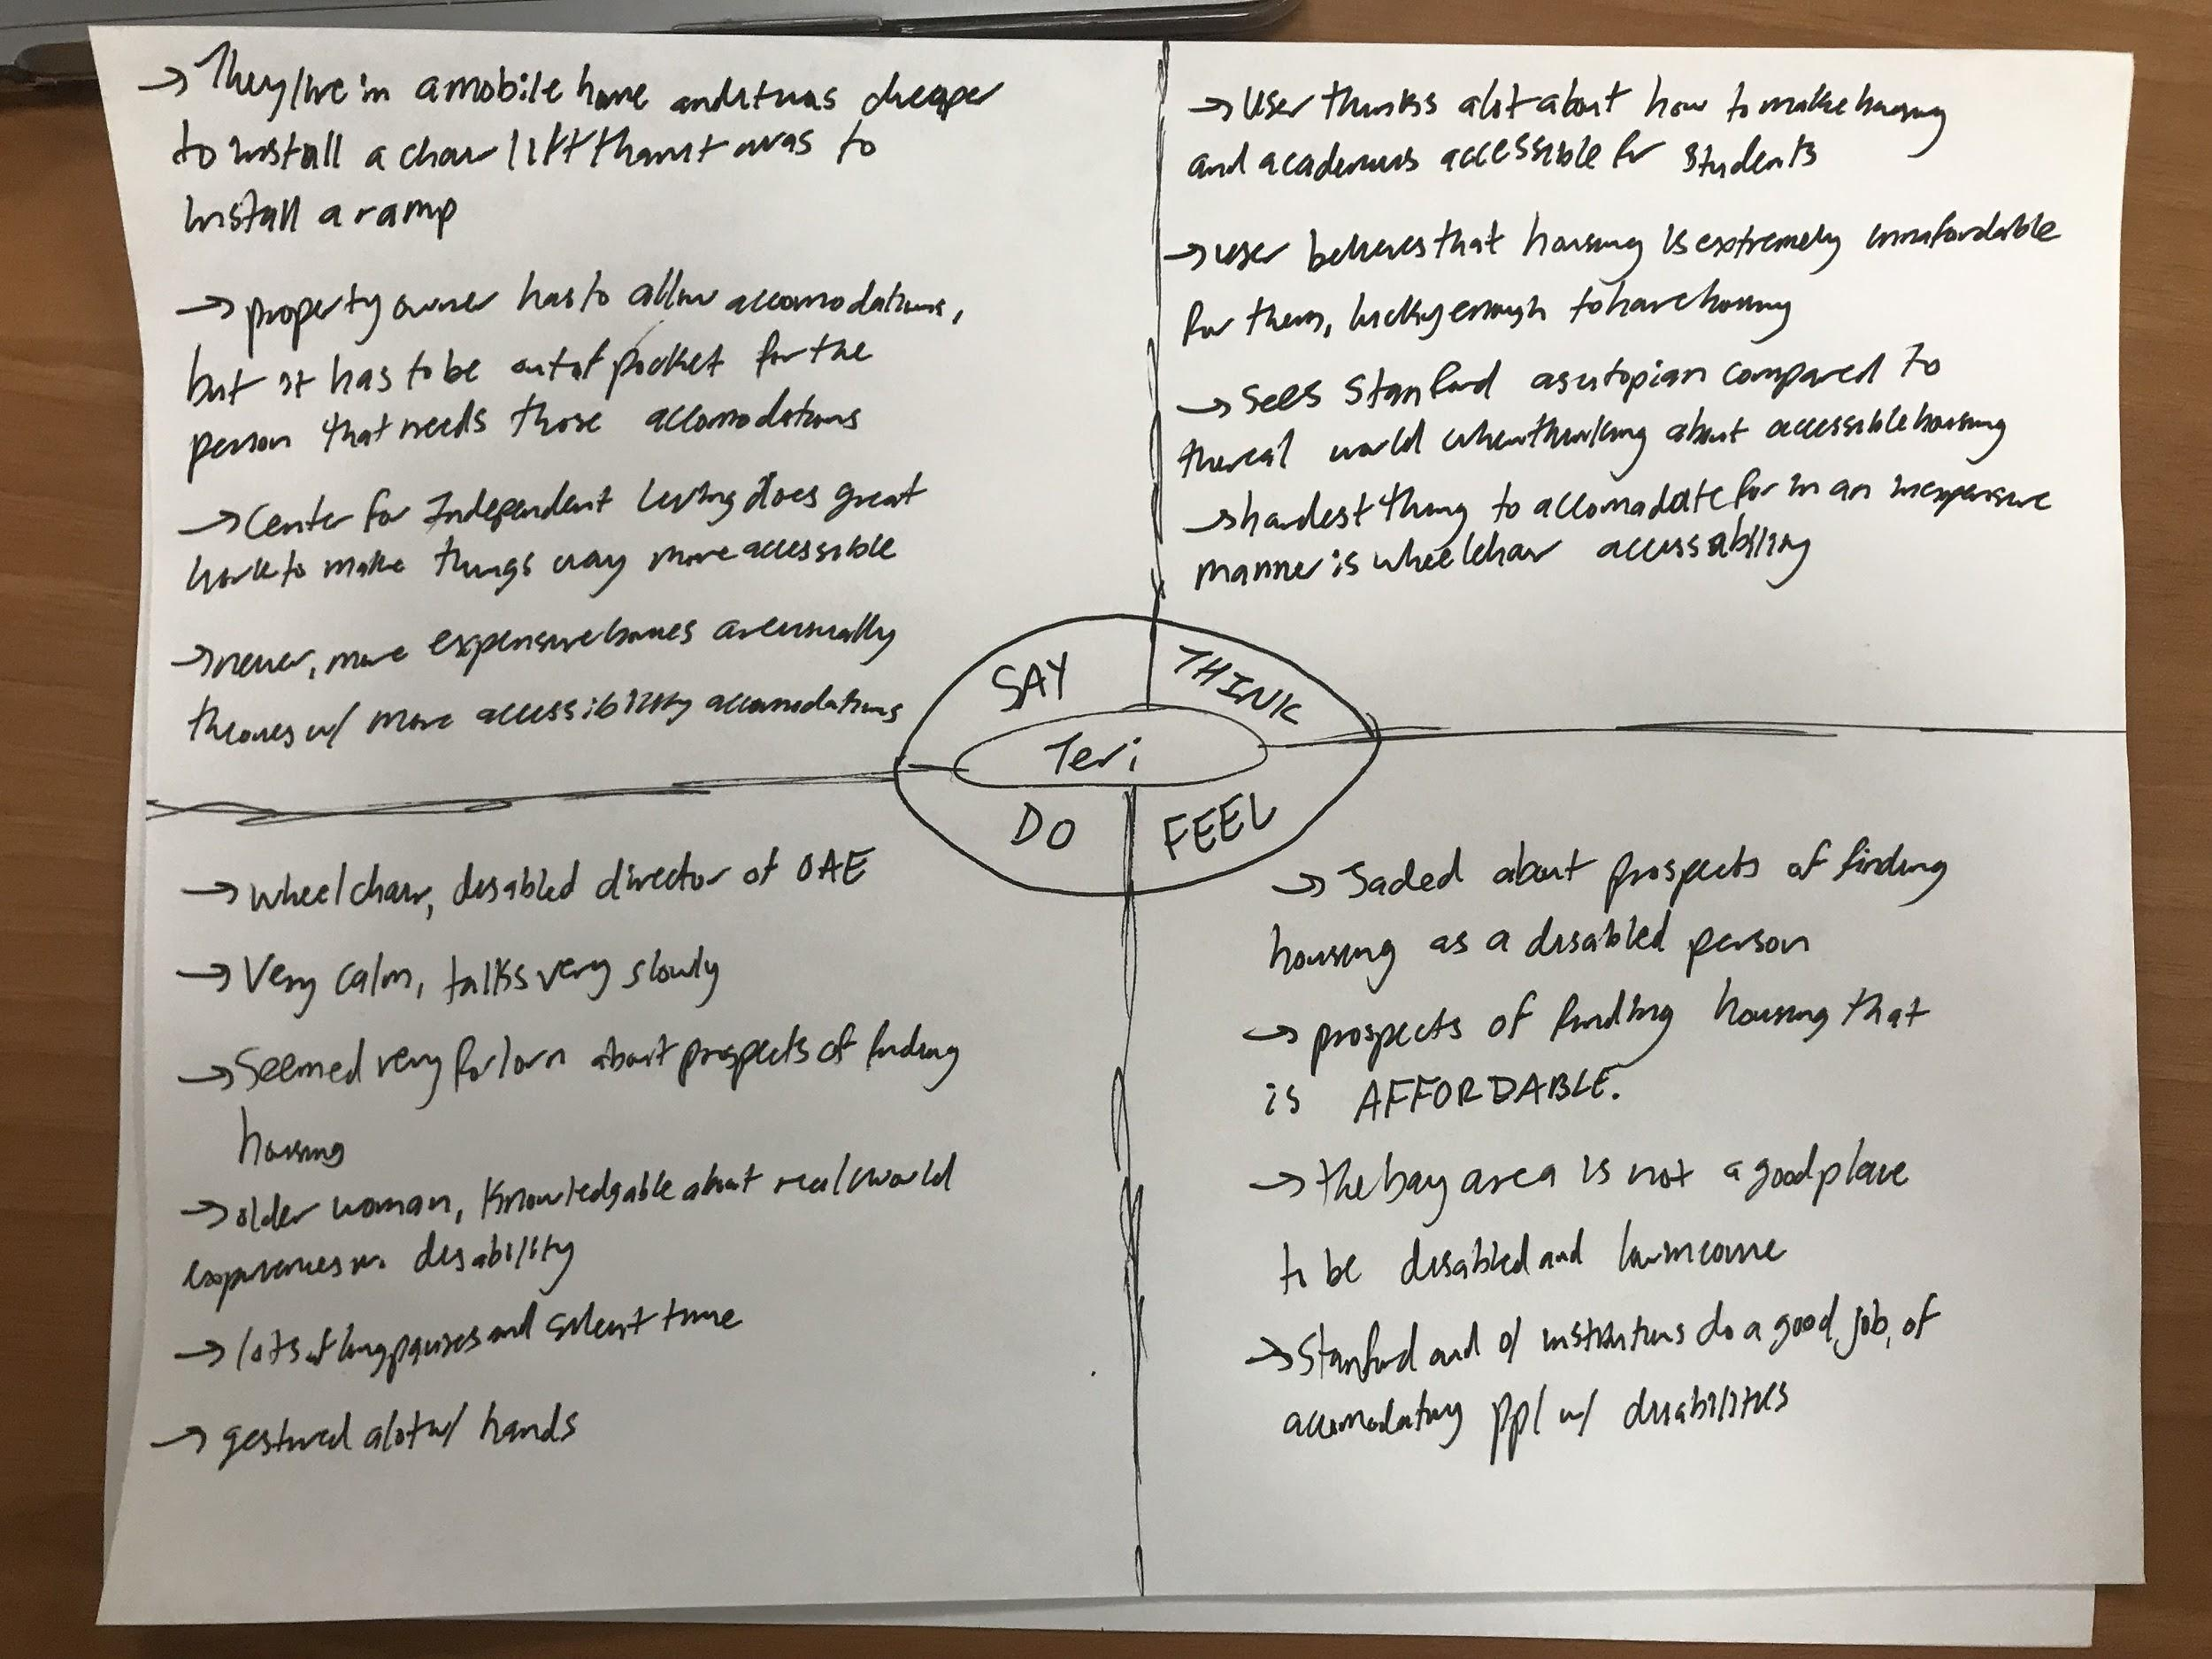 → They live in a mobile home and it was cheaper
to install a chair lift than it was to
install a ramp
→ property owner has to allow accomodations,
but it has to be out of pocket for the
person that needs those accomodations
→ Center for Independent Living does great
work to make things way more accessible
→ newer, more expensive homes are usually
the ones w/ more accessibility accomodations
→ User thinks alot about how to make housing
and academics accessible for students
→ user believes that housing is extremely unnafordable
for them, lucky enough to have housing
→ Sees Stanford as utopian compared to
the real world when thinking about accessible housing
→ hardest thing to accomadate for in an inexpensive
manner is wheelchair accessability
SAY
THINK
Teri
DO
FEEL
→ Wheelchair, disabled director of OAE
→ Very calm, talks very slowly
→ Seemed very forlorn about prospects of finding
housing
→ older woman, knowledgable about real world
experiences w. disability
→ lots of long pauses and silent time
→ gestured alot w/ hands
→ Jaded about prospects of finding
housing as a disabled person
→ prospects of finding housing that
is AFFORDABLE.
→ the bay area is not a good place
to be disabled and low income
→ Stanford and o/ institutions do a good job, of
accomodating ppl w/ disabilities